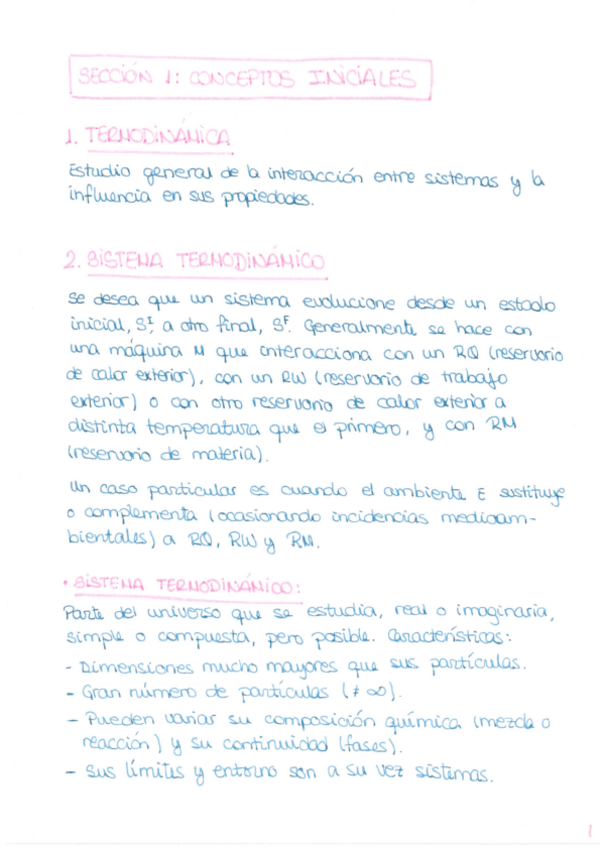 SECCIÓN 1: CONCEPTOS INICIALES
1. TERMODINÁMICA
Estudio general de la interacción entre sistemas y la
influencia en sus propiedades.
2. SISTEMA TERMODINÁMICO
Se desea que un sistema evolucione desde un estado
inicial, Sᴵ, a otro final, Sᶠ. Generalmente se hace con
una máquina M que interacciona con un RQ (reservorio
de calor exterior), con un RW (reservorio de trabajo
exterior) o con otro reservorio de calor exterior a
distinta temperatura que el primero, y con RM
(reservorio de materia).
Un caso particular es cuando el ambiente E sustituye
o complementa (ocasionando incidencias medioam-
bientales) a RQ, RW y RM.
• SISTEMA TERMODINÁMICO:
Parte del universo que se estudia, real o imaginaria,
simple o compuesta, pero posible. Características:
- Dimensiones mucho mayores que sus partículas.
- Gran número de partículas (≠ ∞).
- Pueden variar su composición química (mezcla o
reacción) y su continuidad (fases).
- Sus límites y entorno son a su vez sistemas.
1